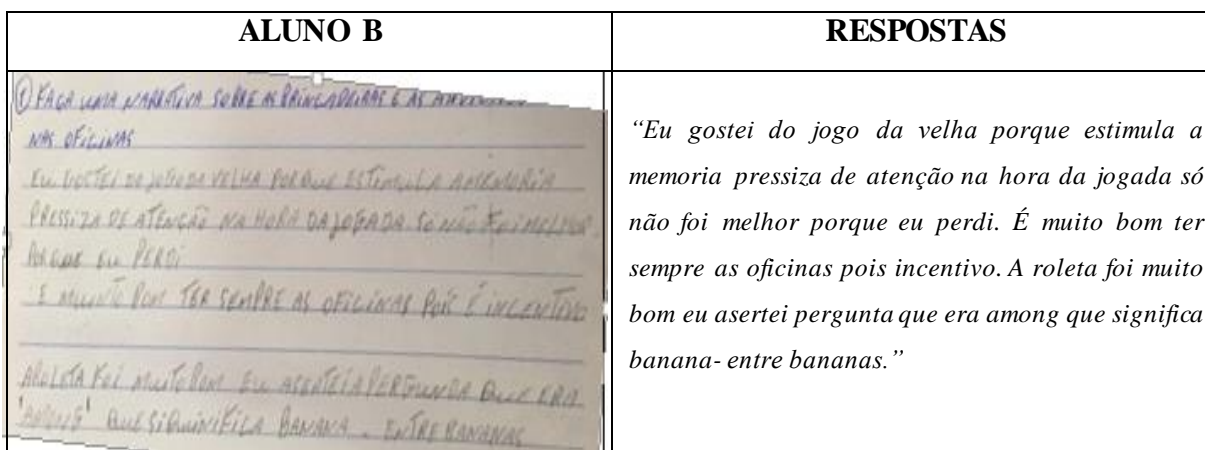 ALUNO B
RESPOSTAS
① FAÇA UMA NARRATIVA SOBRE AS BRINCADEIRAS E AS
NAS OFICINAS
EU GOSTEI DO JOGO DA VELHA PORQUE ESTIMULA A MEMORIA
PRESSIZA DE ATENÇÃO NA HORA DA JOGADA. SÓ NÃO FOI MELHOR
PORQUE EU PERDI
É MUINTO BOM TER SEMPRE AS OFICINAS POIS É INCENTIVO
A ROLETA FOI MUITO BOM EU ASERTEI A PERGUNDA QUE ERA
QUE SIQUINIFICA BANANA. ENTRE BANANAS
“Eu gostei do jogo da velha porque estimula a
memoria pressiza de atenção na hora da jogada só
não foi melhor porque eu perdi. É muito bom ter
sempre as oficinas pois incentivo. A roleta foi muito
bom eu asertei pergunta que era among que significa
banana- entre bananas.”